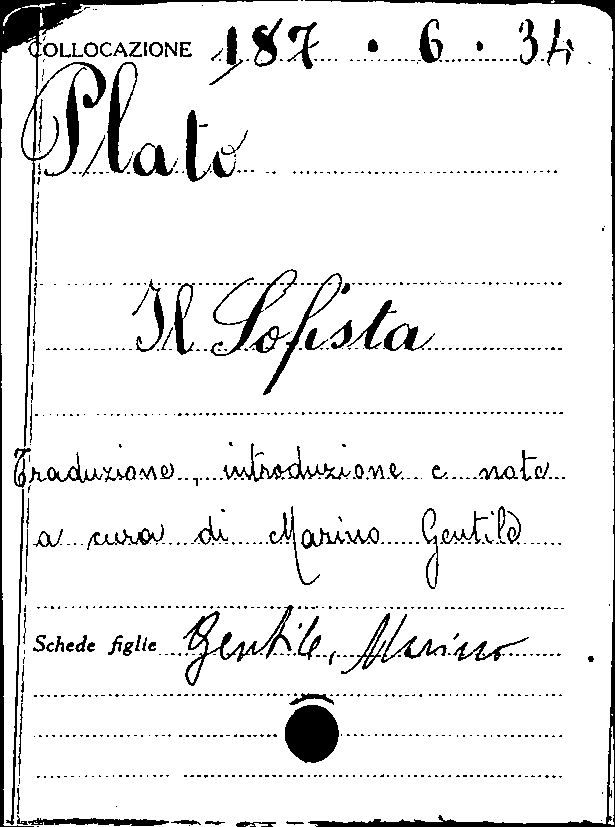 COLLOCAZIONE 187 . 6 . 34
Plato
Il Sofista
Traduzione, introduzione e note
a cura di Marino Gentile
Schede figlie Gentile, Marino